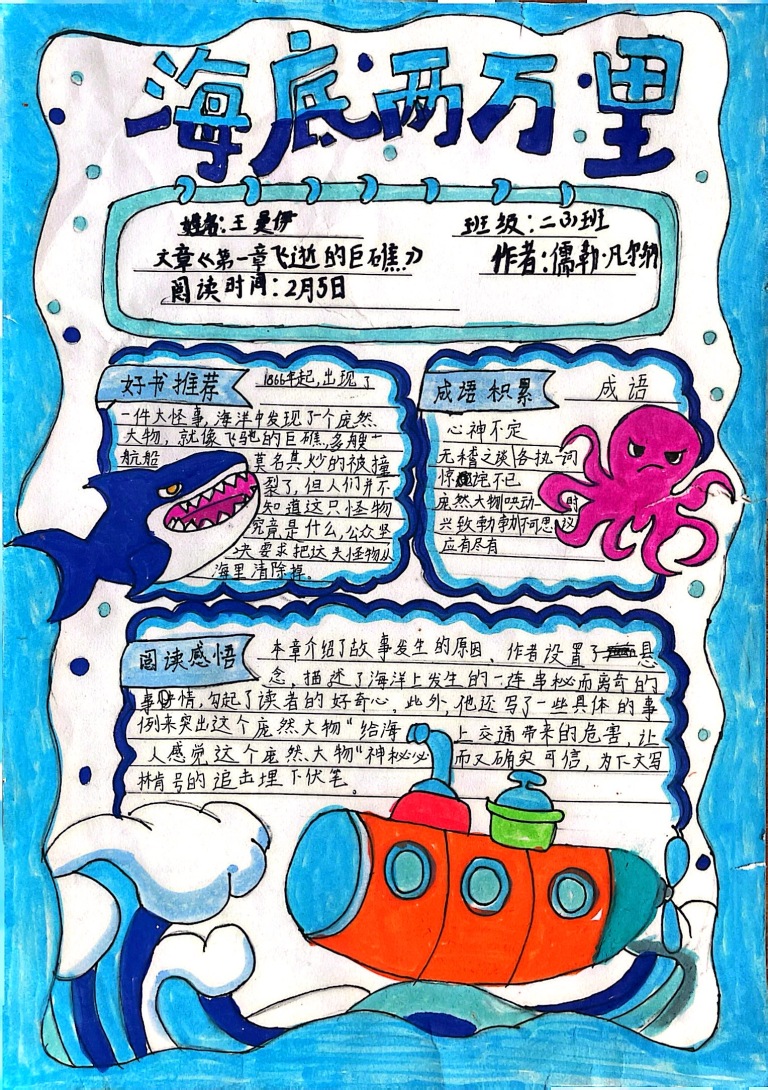 海底两万里
姓名:王曼伊 班级:二(3)班
文章《第一章飞逝的巨礁》 作者:儒勒·凡尔纳
阅读时间:2月5日
好书推荐 1866年起,出现了
一件大怪事,海洋中发现了个庞然
大物,就像飞驰的巨礁,多艘
航船 莫名其妙的被撞
裂了,但人们并不
知道这只怪物
究竟是什么,公众坚
决要求把这头怪物从
海里清除掉。
成语积累 成语
心神不定
无稽之谈 各执一词
惊诧不已
庞然大物 哄动一时
兴致勃勃 不可思议
应有尽有
阅读感悟 本章介绍了故事发生的原因,作者设置了悬
念,描述了海洋上发生的一连串秘而离奇的
事情,勾起了读者的好奇心。此外,他还写了一些具体的事
例来突出这个庞然大物"给海 上交通带来的危害,让
人感觉这个庞然大物"神秘 而又确实可信,为下文写
林肯号的追击埋下伏笔。